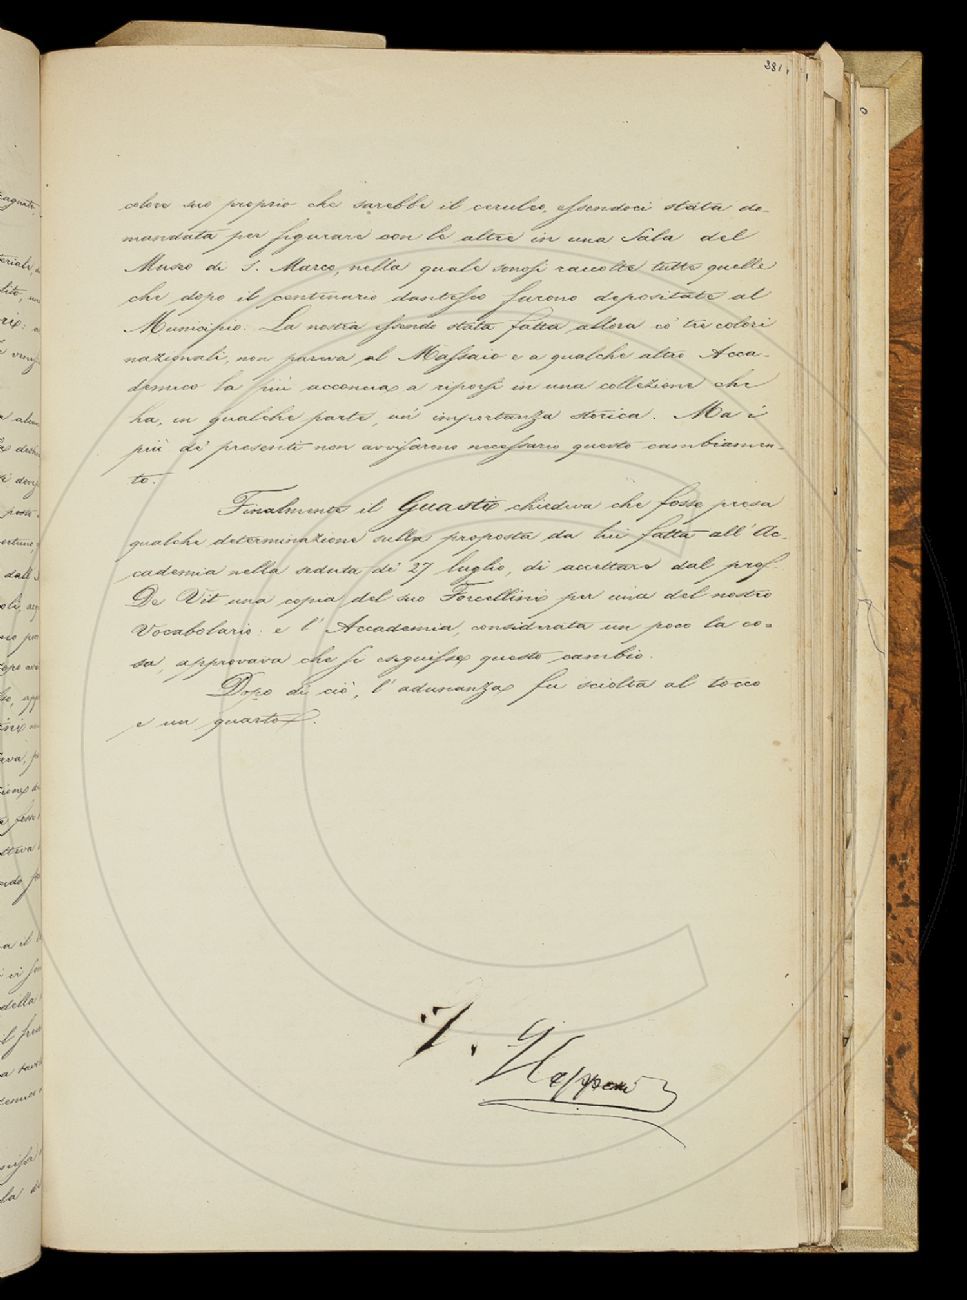 381.
colore suo proprio che sarebbe il ceruleo, essendoci stata do-
mandata per figurare con le altre in una Sala del
Museo di S. Marco, nella quale sonosi raccolte tutte quelle
che dopo il centenario dantesco furono depositate al
Municipio. La nostra essendo stata fatta allora co' tre colori
nazionali, non pareva al Massaio e a qualche altro Acca-
demico la più acconcia a riporsi in una collezione che
ha, in qualche parte, un' importanza storica. Ma i
più de' presenti non avvisarono necessario questo cambiamen-
to.
Finalmente il Guasti chiedeva che fosse presa
qualche determinazione sulla proposta da lui fatta all' Ac-
cademia nella seduta de' 27 luglio, di accettare dal prof.
De Vit una copia del suo Forcellini per una del nostro
Vocabolario: e l' Accademia, considerata un poco la co-
sa, approvava che si eseguisse questo cambio.
Dopo di ciò, l' adunanza fu sciolta al tocco
e un quarto.